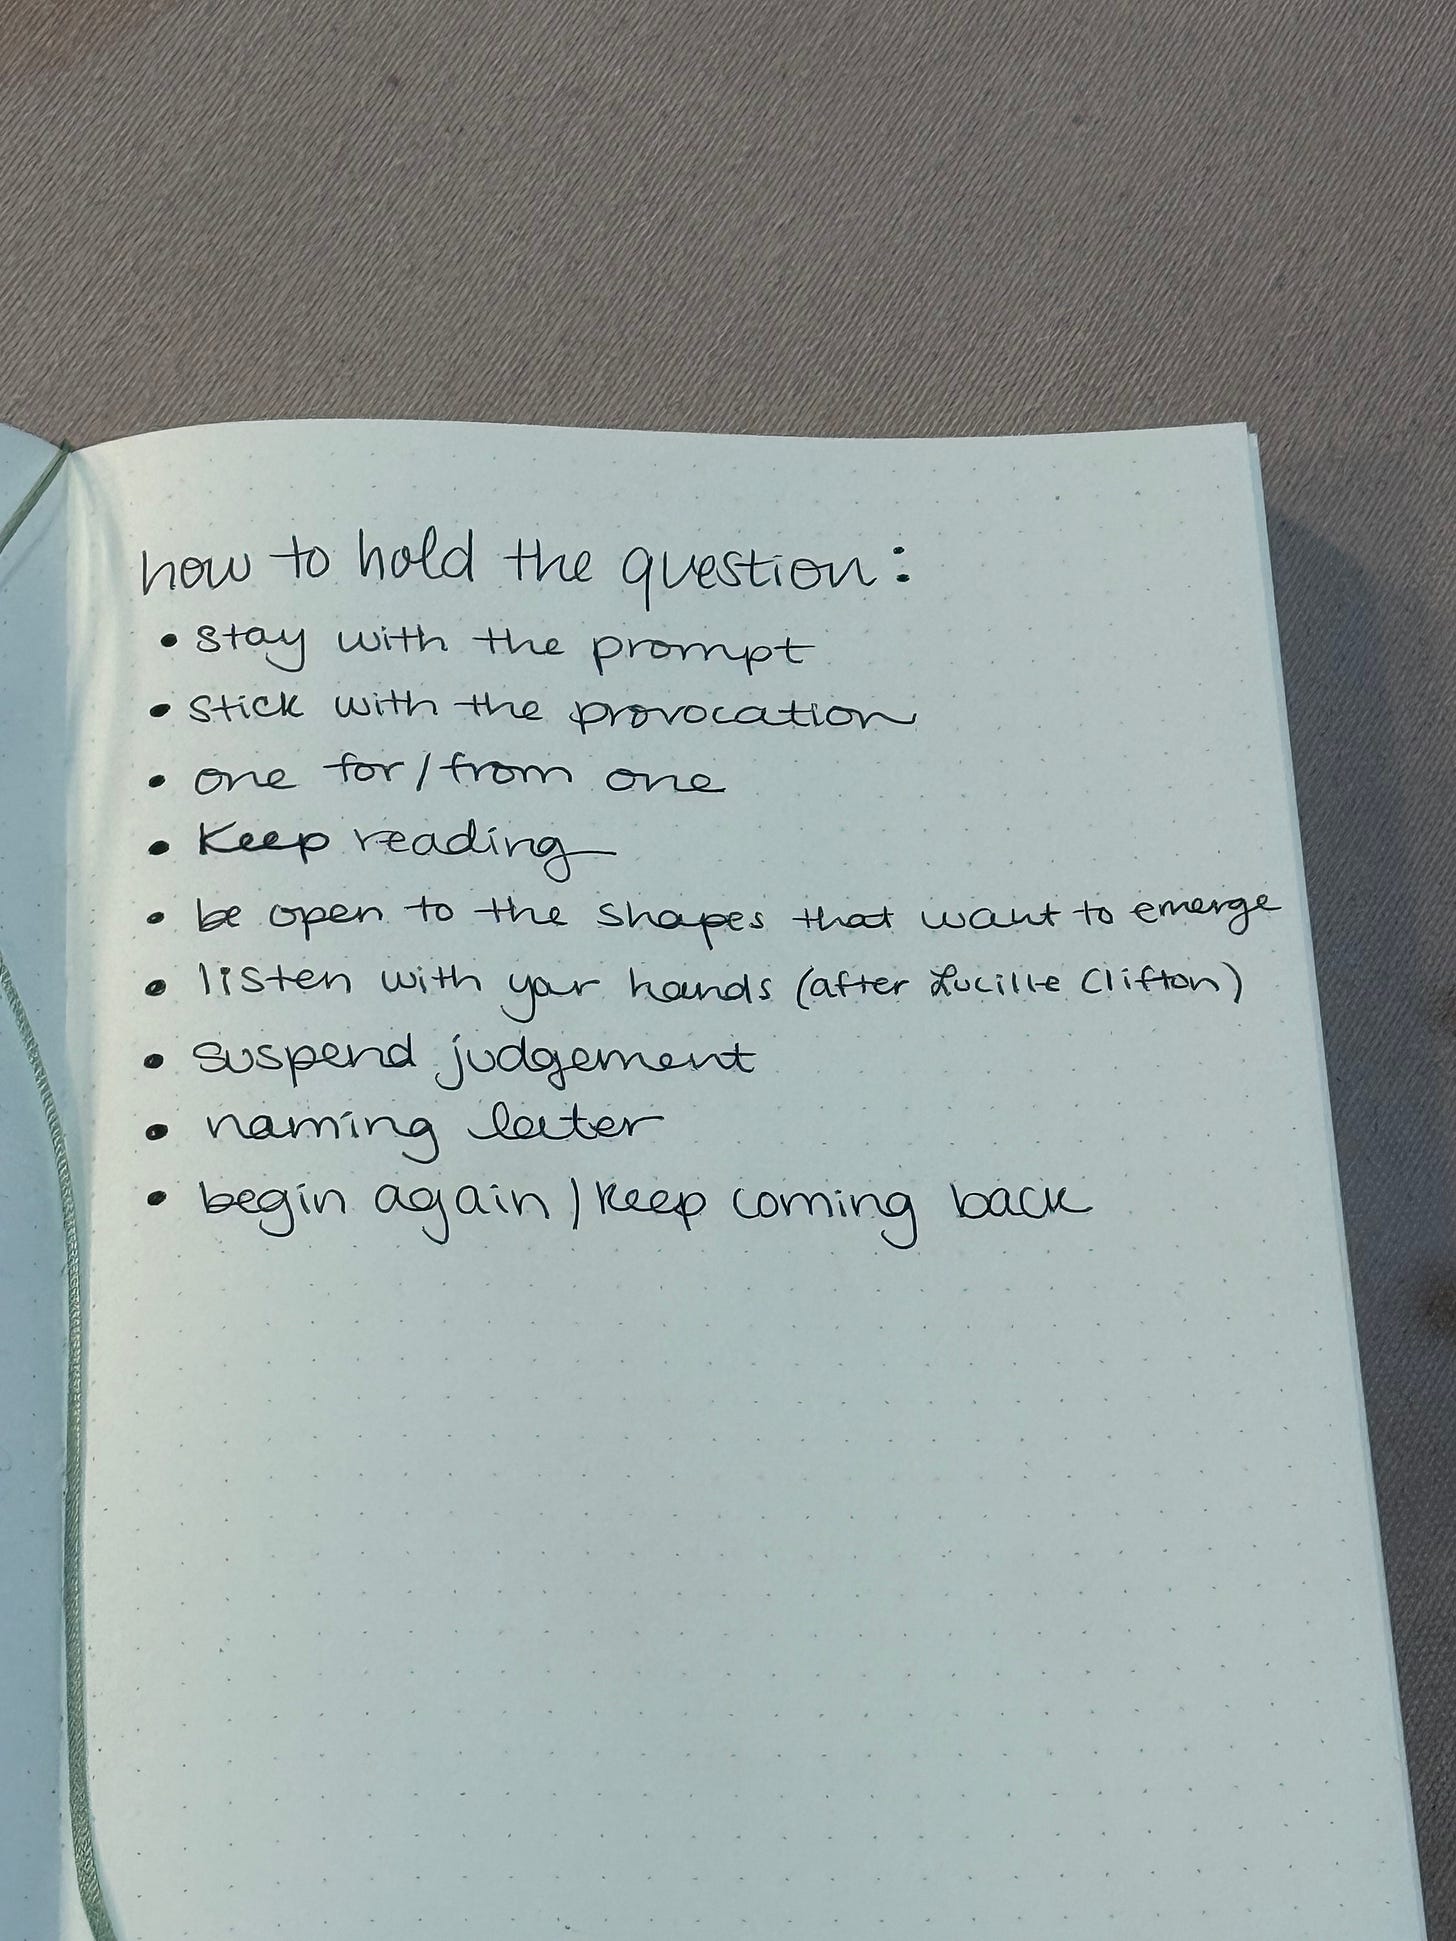 how to hold the question:
• stay with the prompt
• stick with the provocation
• one for/from one
• Keep reading
• be open to the shapes that want to emerge
• listen with your hands (after Lucille Clifton)
• suspend judgement
• naming later
• begin again / keep coming back